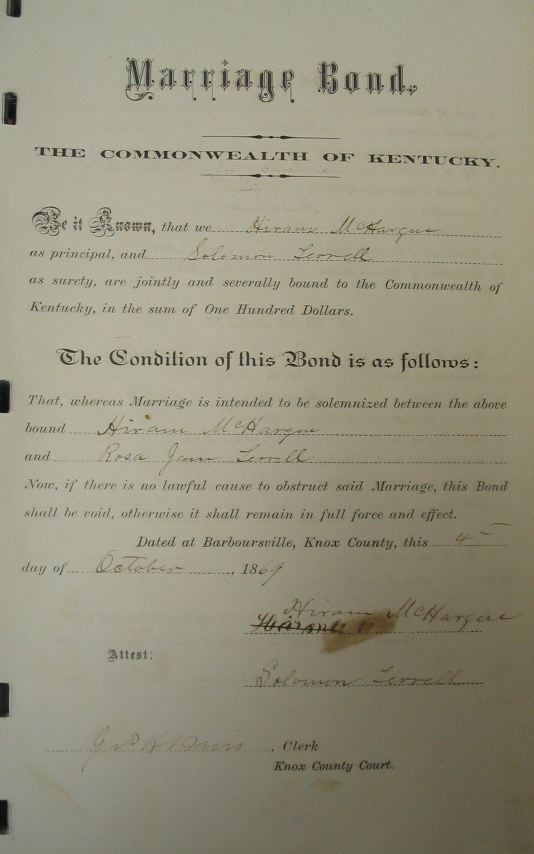 Marriage Bond.
THE COMMONWEALTH OF KENTUCKY.
Be it Known, that we Hiram McHargue
as principal, and Solomon Terrell
as surety, are jointly and severally bound to the Commonwealth of
Kentucky, in the sum of One Hundred Dollars.
The Condition of this Bond is as follows:
That, whereas Marriage is intended to be solemnized between the above
bound Hiram McHargue
and Rosa Jane Terrell
Now, if there is no lawful cause to obstruct said Marriage, this Bond
shall be void, otherwise it shall remain in full force and effect.
Dated at Barboursville, Knox County, this 4
day of October, 1869
Hiram McHargue
Attest:
Solomon Terrell
Davis, Clerk
Knox County Court.